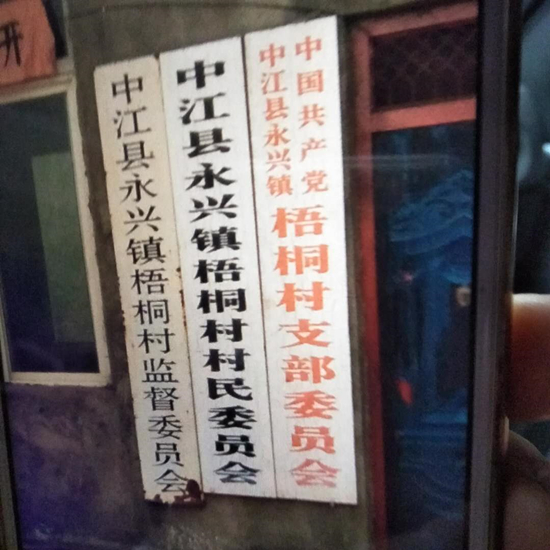 开
中江县永兴镇梧桐村监督委员会
中江县永兴镇梧桐村村民委员会
中国共产党
中江县永兴镇
梧桐村支部委员会